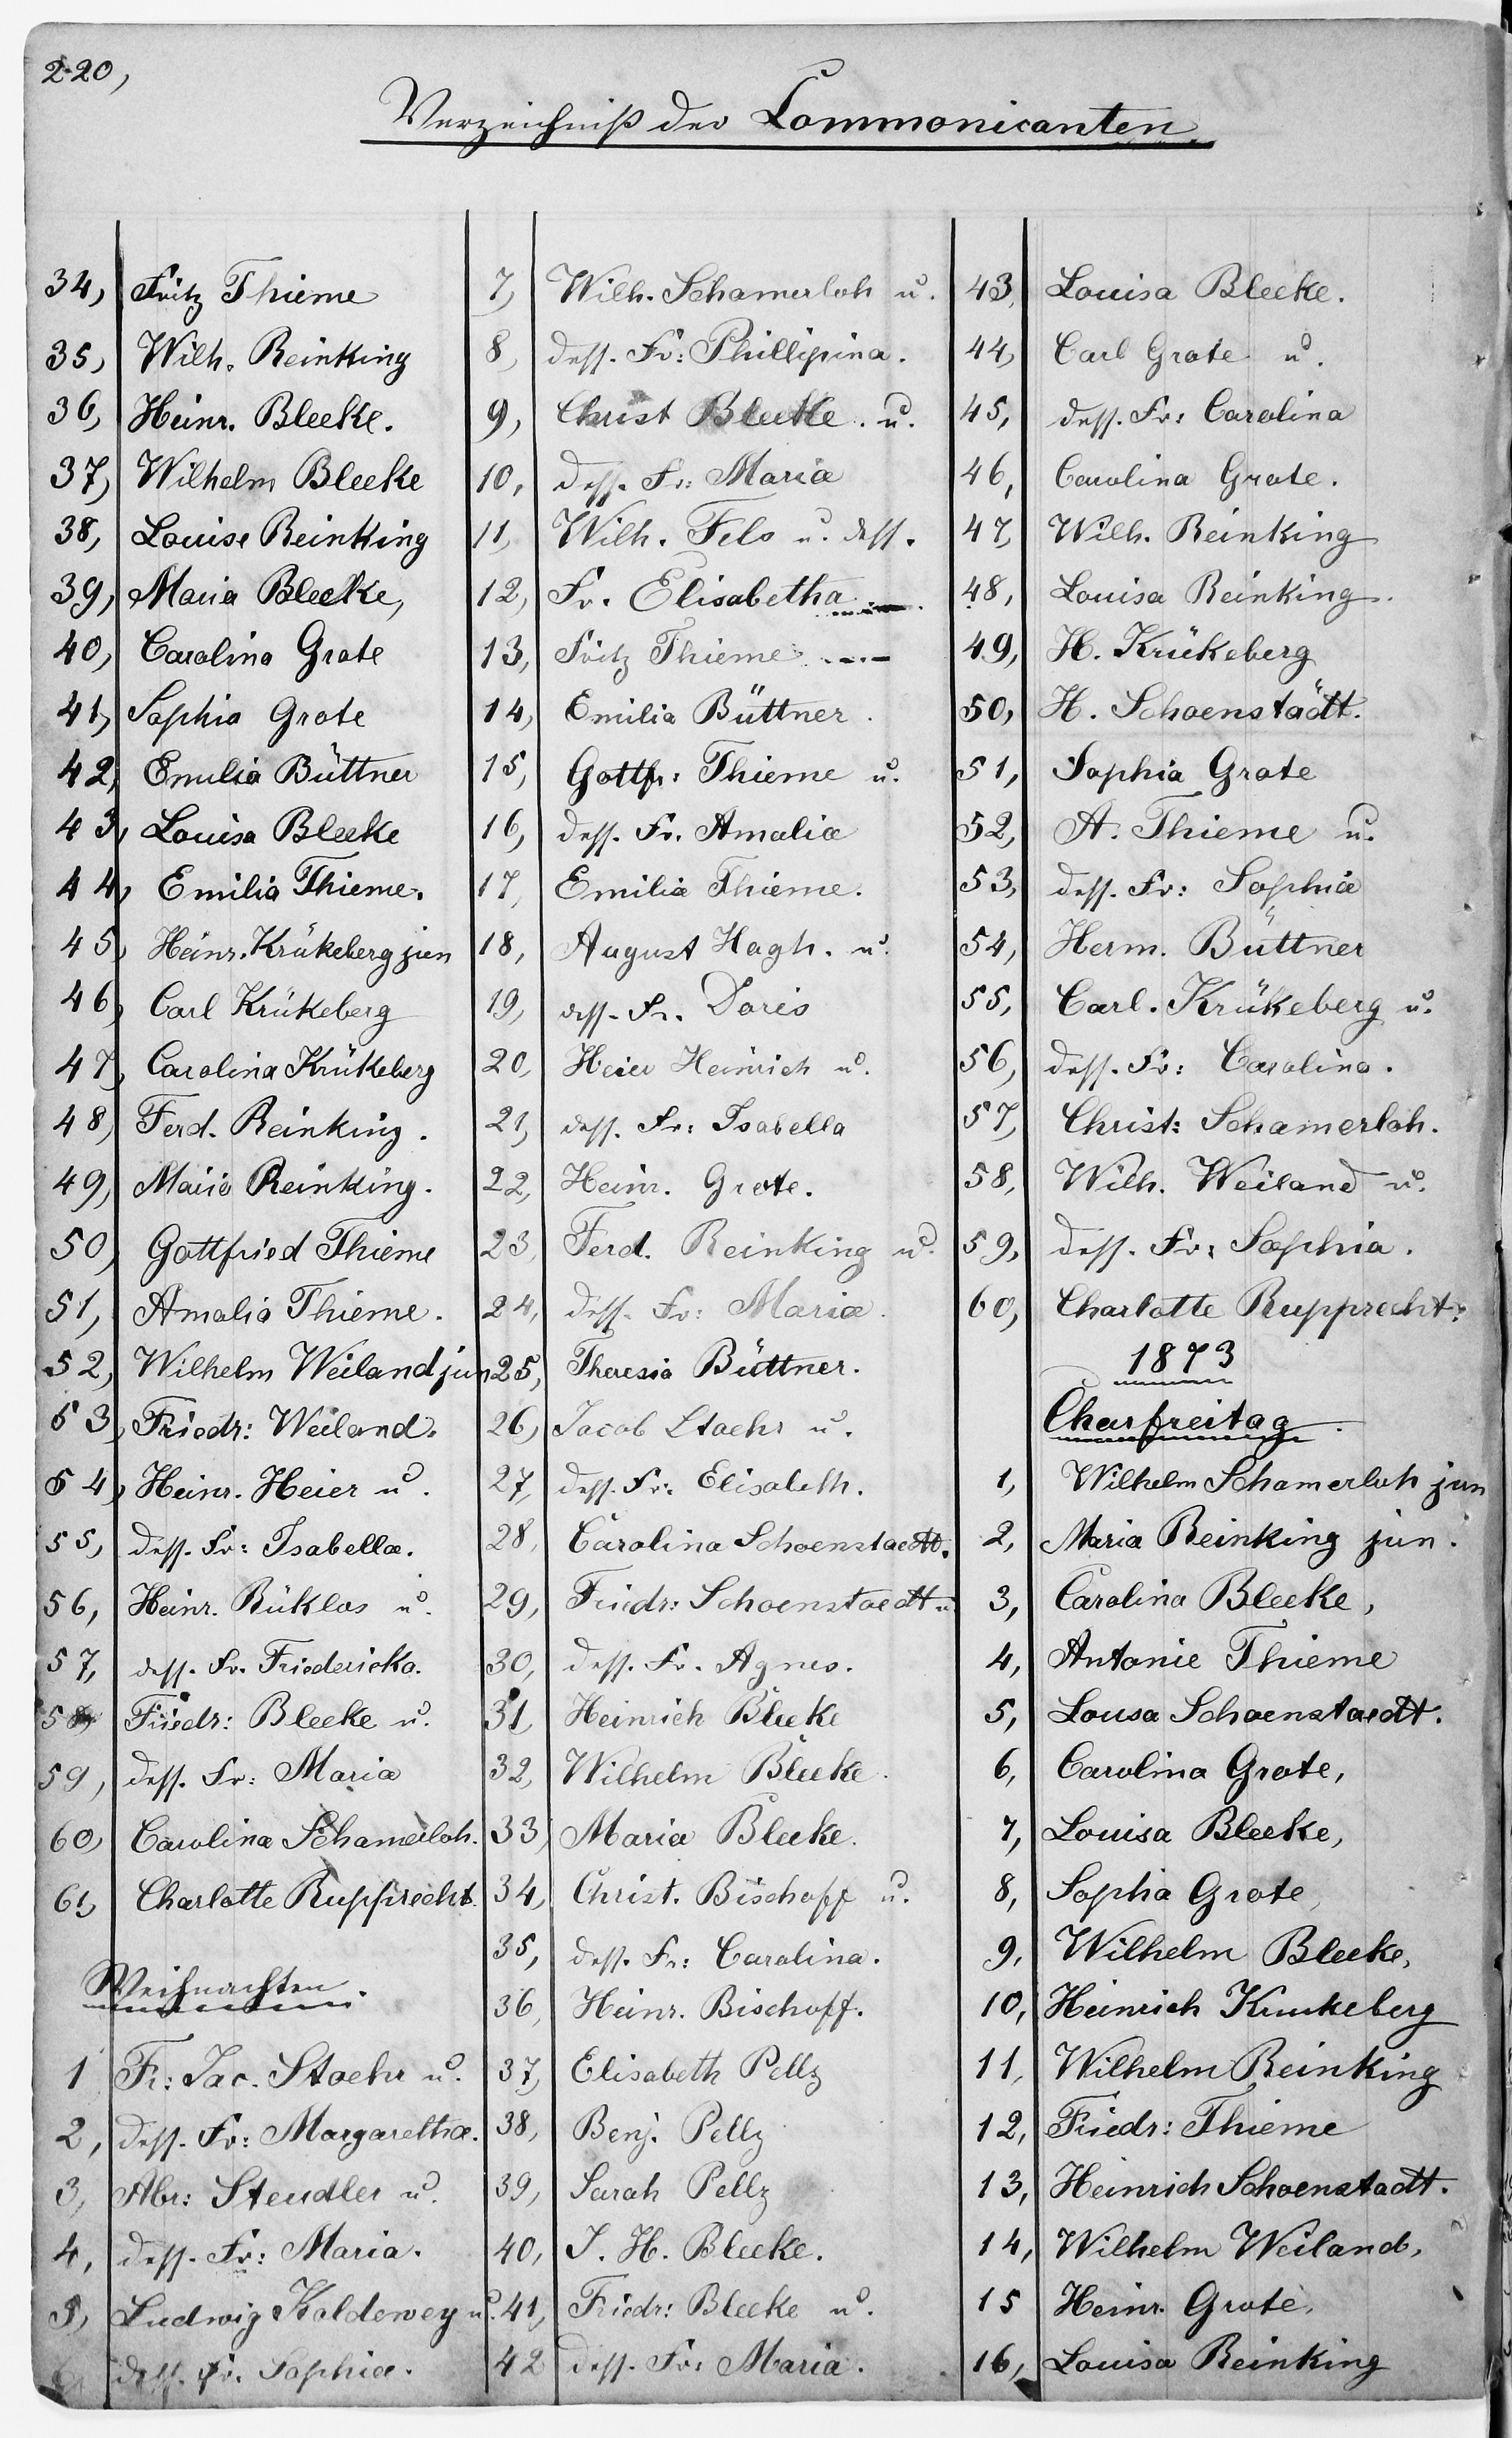 220,
Verzeichniß der Commonicanten
34, Fritz Thieme
35, Wilh. Reinking
36, Heinr. Bleeke.
37, Wilhelm Bleeke
38, Louise Reinking
39, Maria Bleeke,
40, Carolina Grote
41, Sophia Grote
42, Emilia Büttner
43, Louisa Bleeke
44, Emilia Thieme.
45, Heinr. Krükeberg jun
46, Carl Krükeberg
47, Carolina Krükeberg
48, Ferd. Reinking.
49, Maria Reinking.
50, Gottfried Thieme
51, Amalia Thieme.
52, Wilhelm Weiland jun
53, Friedr: Weiland.
54, Heinr. Heier u.
55, dess. Fr: Isabella.
56, Heinr. Rüklos u.
57, dess. Fr. Friedericka.
58, Friedr: Bleeke u.
59, dess. Fr: Maria
60, Carolina Schamerloh.
61, Charlotte Rupprecht.
Weihnachten.
1 Fr: Jac. Staehr u.
2, dess. Fr: Margaretha.
3, Abr: Stendler u.
4, dess. Fr: Maria.
5, Ludwig Kaldewey u.
6, dess. Fr. Sophia.
7, Wilh. Schamerloh u.
8, dess. Fr: Phillipina.
9, Christ Bleeke. u.
10, dess. Fr: Maria
11, Wilh. Fels u. dess.
12, Fr. Elisabetha
13, Fritz Thieme
14, Emilia Büttner.
15, Gottfr: Thieme u.
16, dess. Fr. Amalia
17, Emilia Thieme.
18, August Hagh. u.
19, dess. Fr. Doris
20, Heier Heinrich u.
21, dess. Fr: Isabella
22, Heinr. Grote.
23, Ferd. Reinking u.
24, dess. Fr: Maria.
25, Theresia Büttner.
26, Jacob Staehr u.
27, dess. Fr: Elisabeth.
28, Carolina Schoenstaedt.
29, Friedr: Schoenstaedt u
30, dess. Fr. Agnes.
31, Heinrich Bleeke
32, Wilhelm Bleeke.
33, Maria Bleeke.
34, Christ. Bischoff u.
35, dess. Fr: Carolina.
36, Heinr. Bischoff.
37, Elisabeth Pelly
38, Benj. Pelly
39, Sarah Pelly
40, J. H. Bleeke.
41, Friedr: Bleeke u.
42 dess. Fr: Maria.
43, Louisa Bleeke.
44, Carl Grote u.
45, dess. Fr: Carolina
46, Carolina Grote.
47, Wilh. Reinking
48, Louisa Reinking.
49, H. Krükeberg
50, H. Schoenstädt.
51, Sophia Grote
52, A. Thieme u.
53, dess. Fr: Sophia
54, Herm. Büttner
55, Carl. Krükeberg u.
56, dess. Fr: Carolina.
57, Christ: Schamerloh.
58, Wilh. Weiland u.
59, dess. Fr: Sophia.
60, Charlotte Rupprecht.
1873
Charfreitag.
1, Wilhelm Schamerloh jun
2, Maria Reinking jun.
3, Carolina Bleeke,
4, Antonie Thieme
5, Lousa Schoenstaedt.
6, Carolina Grote,
7, Louisa Bleeke,
8, Sophia Grote,
9, Wilhelm Bleeke,
10, Heinrich Krukeberg
11, Wilhelm Reinking
12, Friedr: Thieme
13, Heinrich Schoenstadt.
14, Wilhelm Weiland,
15 Heinr. Grote,
16, Louisa Reinking